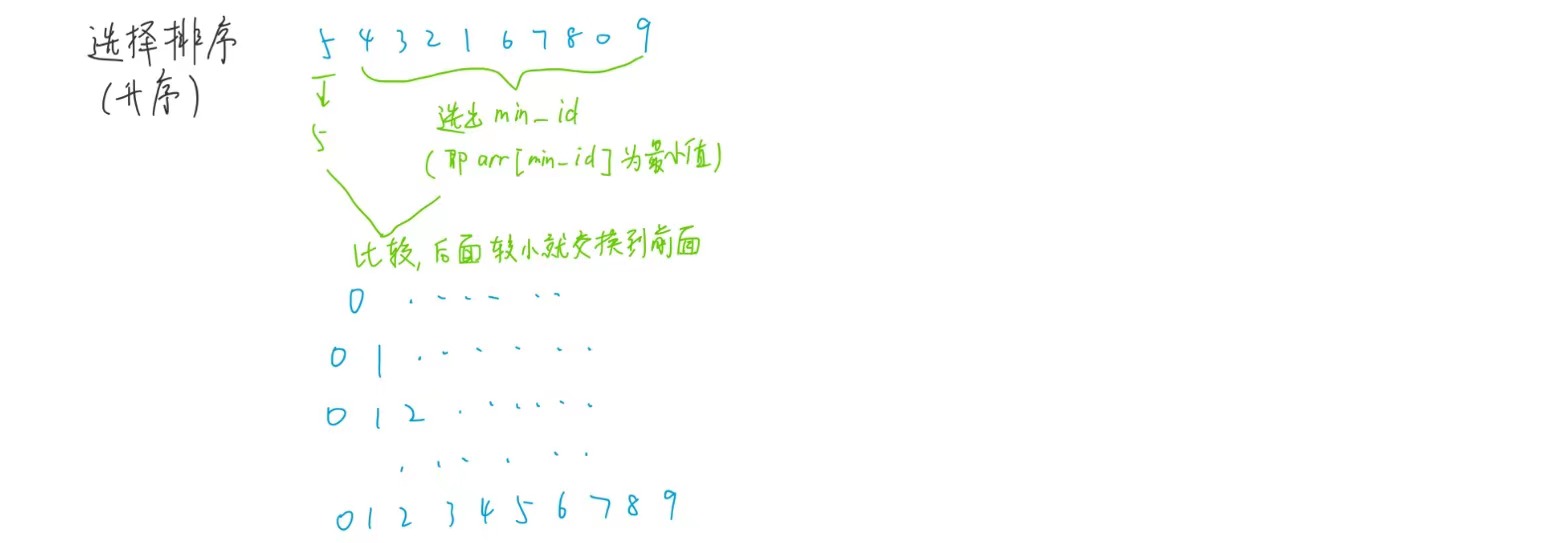 选择排序
(升序)
5 4 3 2 1 6 7 8 0 9
5
选出 min_id
(即 arr[min_id] 为最小值)
比较, 后面较小就交换到前面
0 . . . . . .
0 1 . . . . . .
0 1 2 . . . . . .
. . . . . .
0 1 2 3 4 5 6 7 8 9